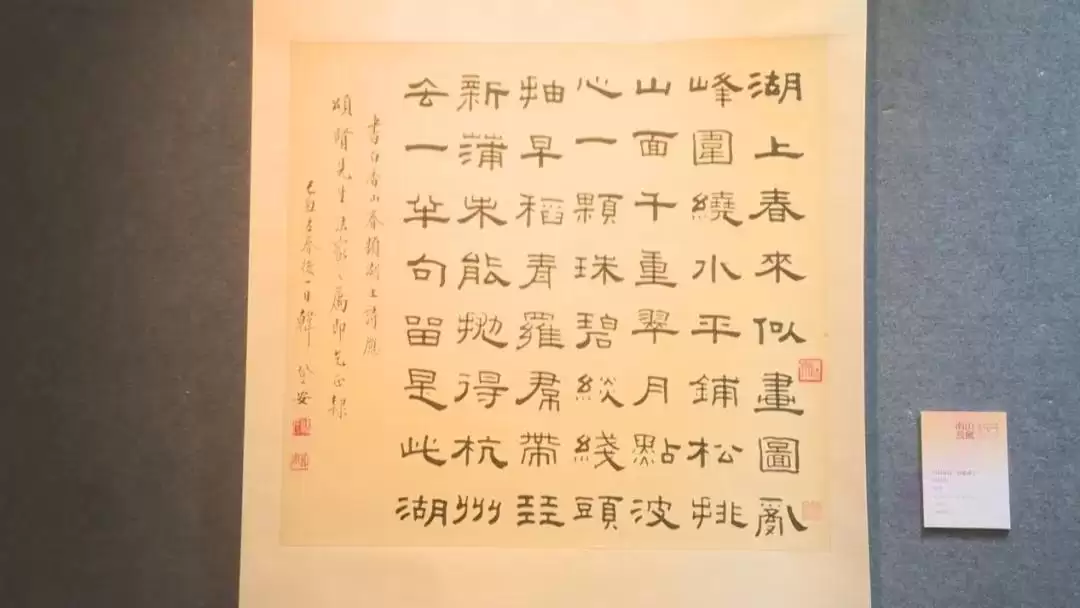 湖上春來似畫圖亂
峰圍繞水平鋪松排
山面千重翠月點波
心一顆珠碧緂綫頭
抽早稻青羅帬帶㠭
新蒲未能拋得杭州
去一半句留是此湖
書白香山春題湖上詩應
頌賢先生法家、屬即乞正隸
春後一日韓登安
南山